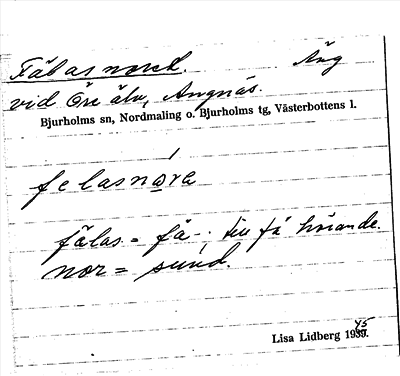 Fälasnoret. Äng
vid Öre älv, Angnäs.
Bjurholms sn, Nordmaling o. Bjurholms tg, Västerbottens l.
felasnɷra
fälas = fä-; till fä hörande.
nor = sund.
Lisa Lidberg 1945.